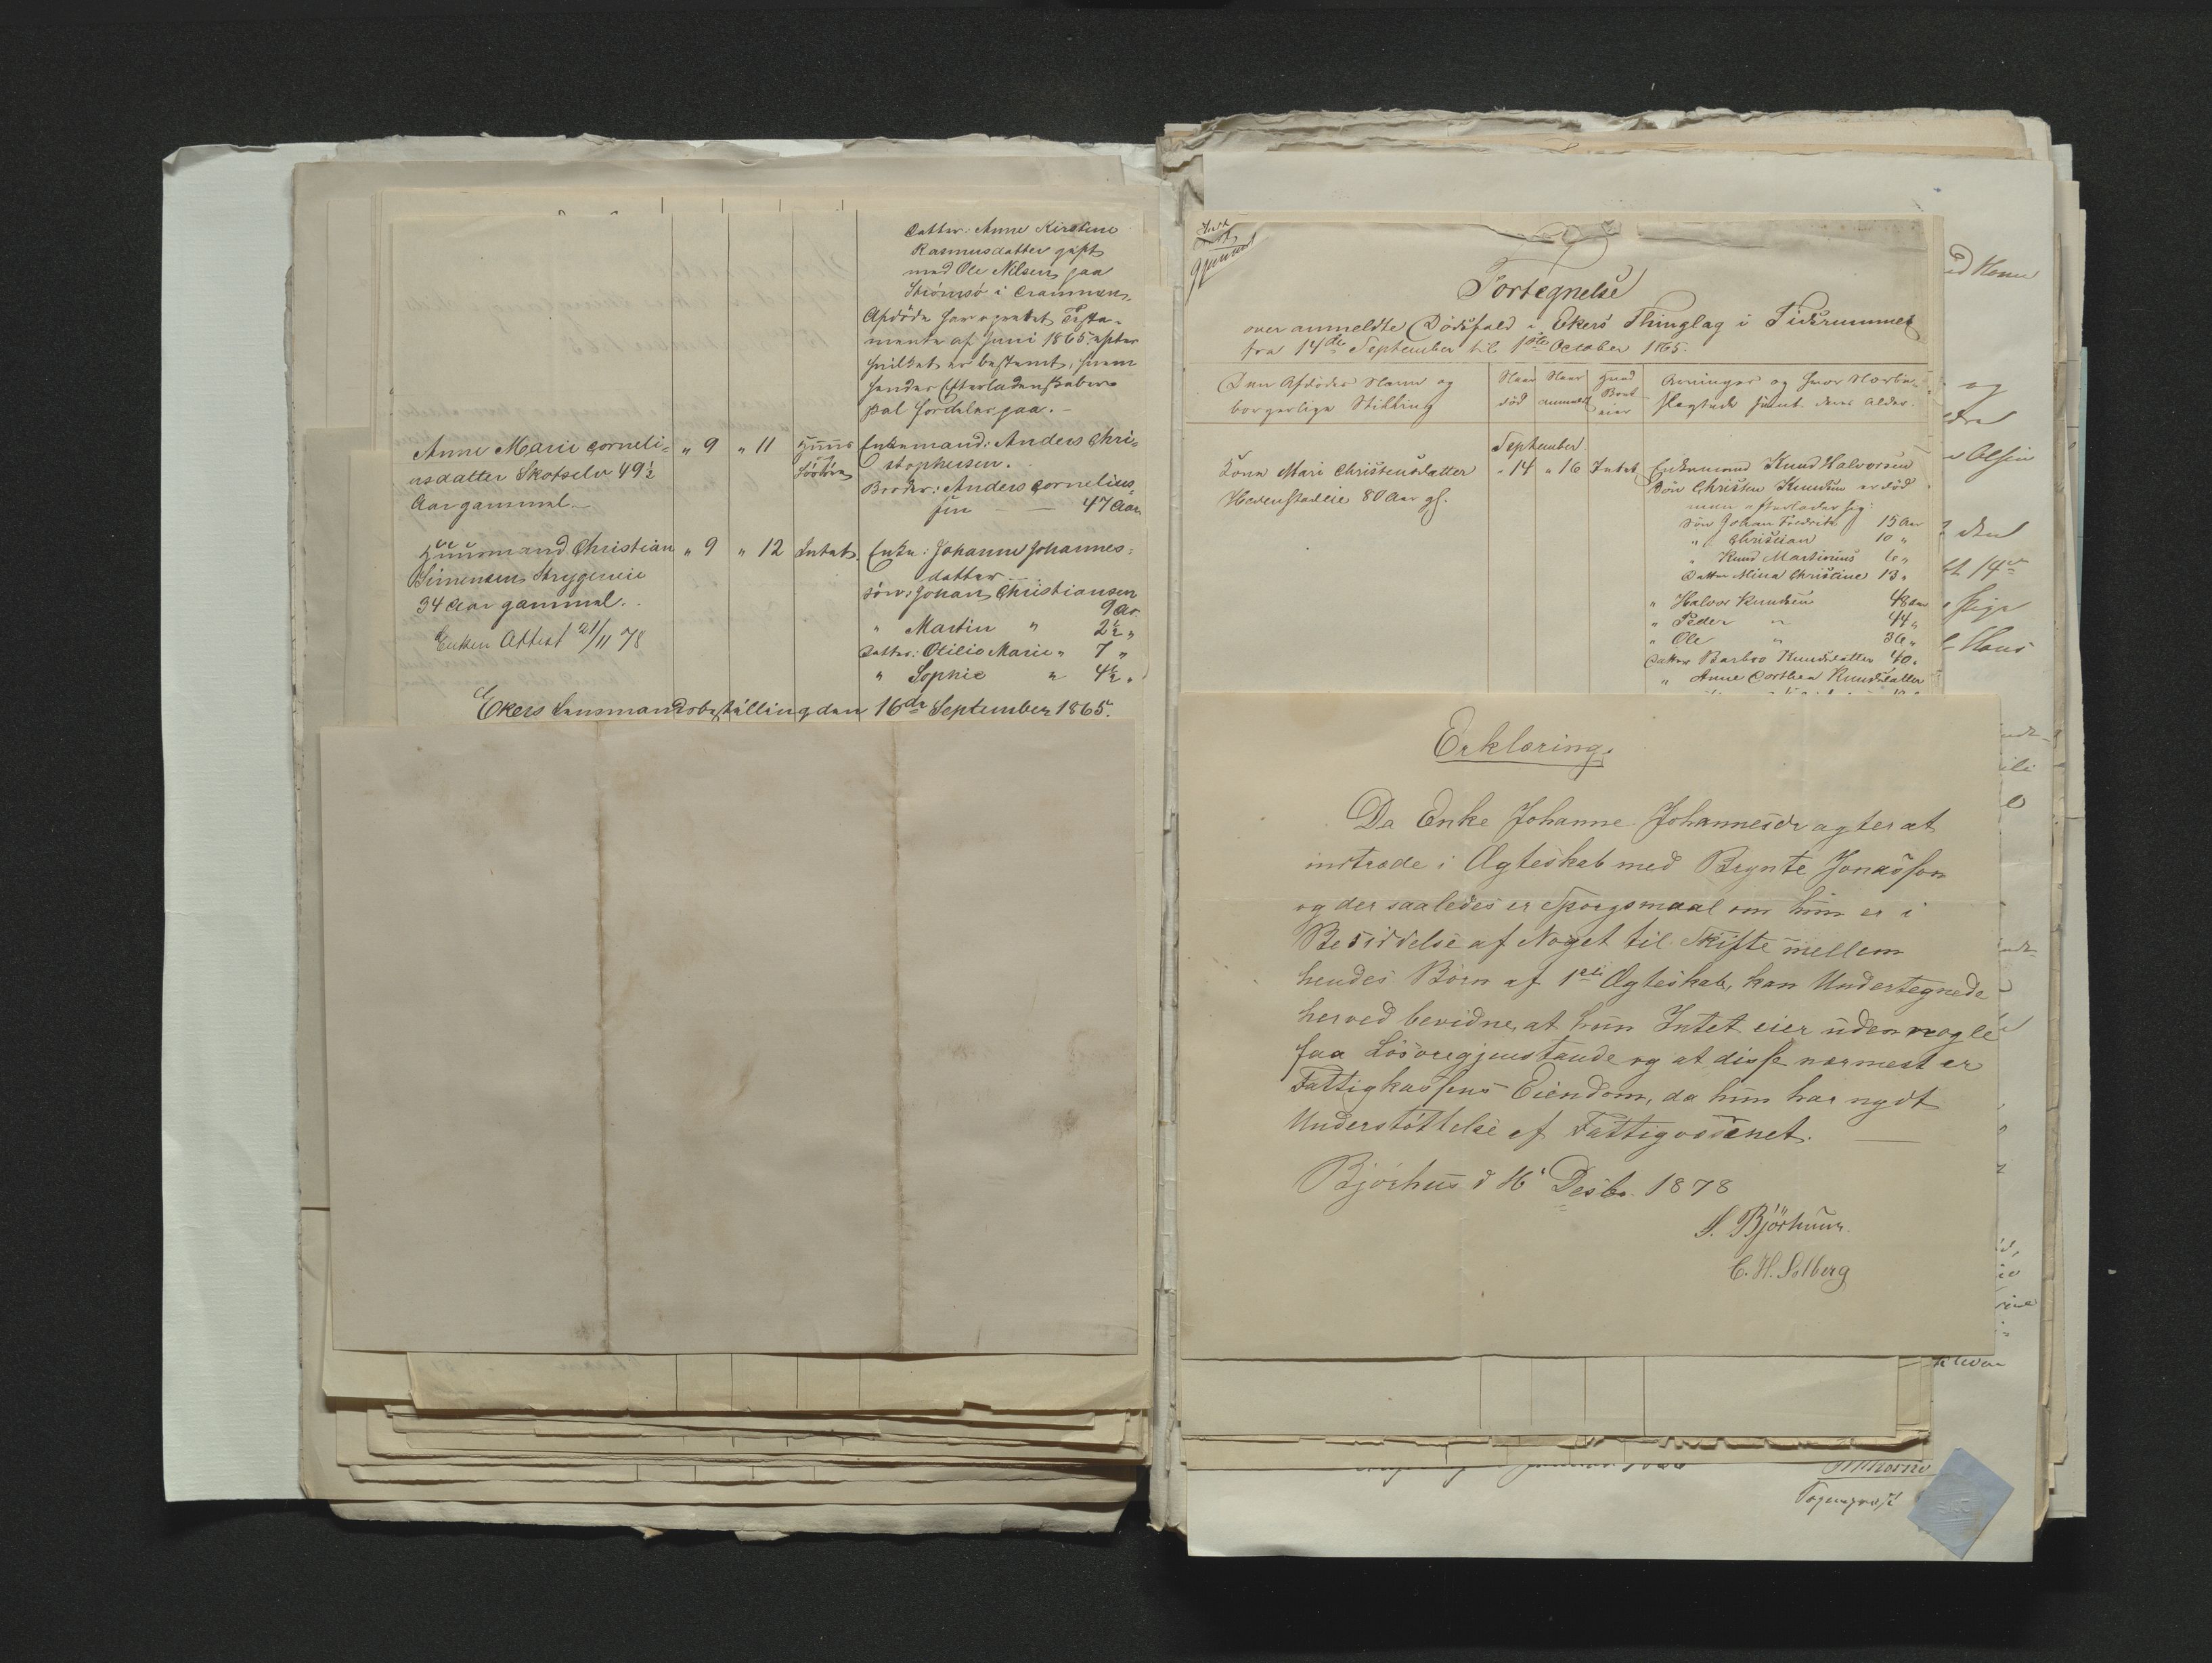 Datter: Anne Kirstine
Rasmusdatter gift
med Ole Nilsen paa
Strömsö i Drammen.
Afdöde har oprettet Testa-
mente af Juni 1865 efter
hvilket er bestemt, hvem
hendes Efterladenskaber
skal fordeles paa. -
Anne Marie Corneli- " 9 " 11 Huus Enkemand: Anders Chri-
usdatter Skotselv 49½ og Lösöre stophersen.
Aar gammel - Broder: Anders Cornelius-
sen — 47 Aar
Huusmand Christian " 9 " 12 Intet. Enke: Johanne Johannes-
Simensen Strygereie datter
34 Aar gammel. Sön: Johan Christiansen
9 Ar.
Enken Attest 21/11 78 " Martin " 2½ "
Datter: Otilie Marie " 7 "
" Sophie " 4½ "
Ekers Lensmandsbestilling den 16de September 1865.
Fortegnelse
over anmeldte Dödsfald i Ekers Thinglag i Tidsrummet
fra 14de September til 1ste October 1865.
Den Afdödes Navn og Naar Naar Hvad Arvinger og hvor Nærbe-
borgerlige Stilling död anmeldt Boet eier slægtede samt deres Alder.
September
Kone Mari Christensdatter " 14 " 16 Intet Enkemand Knud Halvorsen
Hedenstadeie 80 Aar gl. Sön Christen Knudsen er död
men efterlader sig:
Sön Johan Fredrik 15 Aar
" Christian 10 "
" Knud Martinius 6 "
Datter Mina Christine 13 "
" Halvor Knudsen 48 Aar
" Peder " 44 "
" Ole " 36 "
Datter Barbro Knudsdatter 40 "
" Anne Dorthea Knudsdatter
Erklæring.
Da Enke Johanne Johannesdr agter at
indtræde i Ægteskab med Brynte Jonasson
og der saaledes er Spörgsmaal om hun er i
Besiddelse af Noget til Skifte mellem
hendes Börn af 1ste Ægteskab, kan Undertegnede
herved bevidne, at hun Intet eier uden nogle
faa Lösöregjenstande og at disse nærmest er
Fattigkassens Eiendom, da hun har nydt
Understöttelse af Fattigvæsenet. —
Björhus d 16 Desbr. 1878
S. Björhuus.
C. H. Solberg